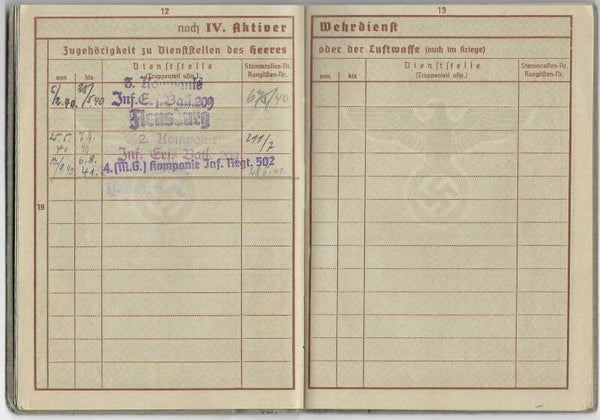 12
noch IV. Aktiver
Zugehörigkeit zu Dienststellen des Heeres
von
bis
Dienststelle
(Truppenteil usw.)
Stammrollen-Nr.
Ranglisten-Nr.
3. Kompanie
Inf. Ers. Batl. 209
Flensburg
675/40
2. Kompanie
Inf. Ers. Batl.
211/2
6.8.
41.
4. (M.G.) Kompanie Inf. Regt. 502
19
13
Wehrdienst
oder der Luftwaffe (auch im Kriege)
von
bis
Dienststelle
(Truppenteil usw.)
Stammrollen-Nr.
Ranglisten-Nr.